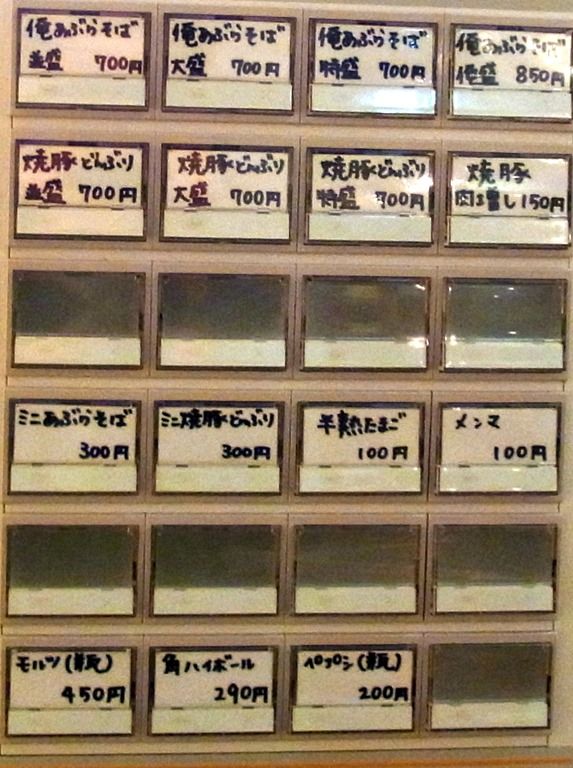 俺あぶらそば
並盛 700円
俺あぶらそば
大盛 700円
俺あぶらそば
特盛 700円
俺あぶらそば
俺盛 850円
焼豚どんぶり
並盛 700円
焼豚どんぶり
大盛 700円
焼豚どんぶり
特盛 700円
焼豚
肉増し150円
ミニあぶらそば
300円
ミニ焼豚どんぶり
300円
半熟たまご
100円
メンマ
100円
モルツ(瓶)
450円
角ハイボール
290円
ペプシ(瓶)
200円